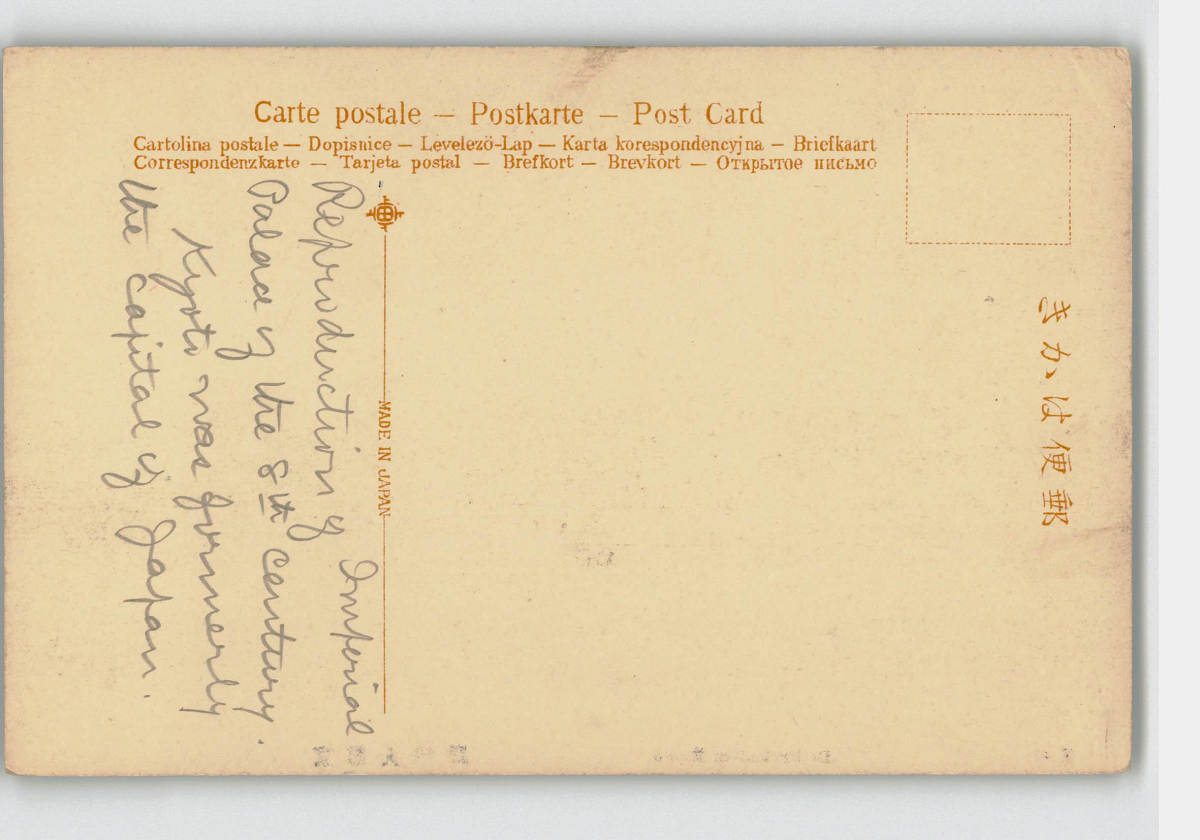 Carte postale — Postkarte — Post Card
Cartolina postale — Dopisnice — Levelező-Lap — Karta korespondencyjna — Briefkaart
Correspondenzkarte — Tarjeta postal — Brefkort — Brevkort — Открытое письмо
きかは便郵
MADE IN JAPAN
Reproduction of Imperial
Palace of the 8th century.
Kyoto was formerly
the capital of Japan.